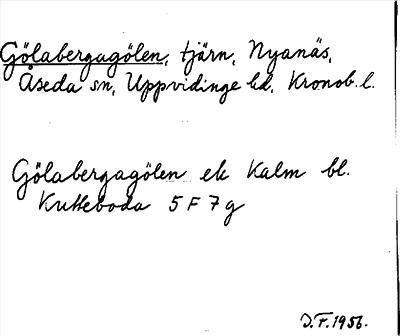 Gölabergagölen, tjärn, Nyanäs,
Åseda sn, Uppvidinge hd, Kronob. l.
Gölabergagölen ek Kalm bl.
Kutteboda 5 F 7 g
J.F. 1956.